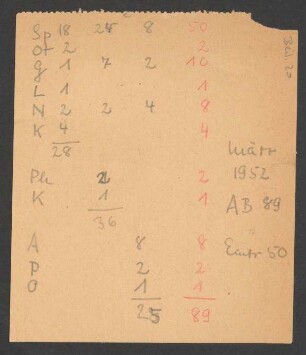 Sp 18 24 8 50
Ot 2 2
G 1 7 2 10
L 1 1
N 2 2 4 8
K 4 4
28
Ph 2 2
K 1 1
36
A 8 8
P 2 2
O 1 1
25 89
März
1952
AB 89
50